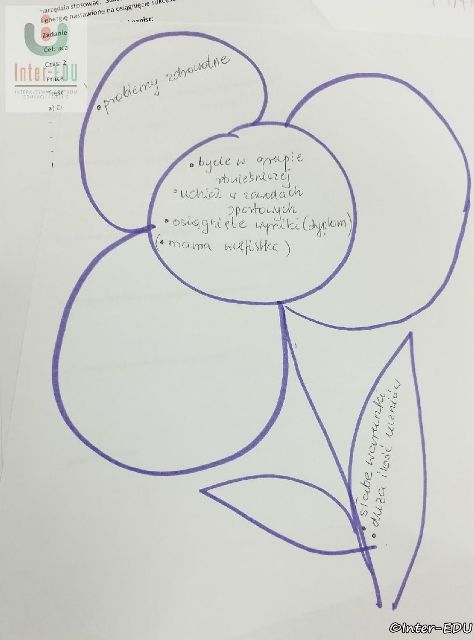 narzędzia stosować.
i energię nastawione na osiągnięcie sukcesu
Zadanie
Inter-EDU
• problemy zdrowotne
• bycie w grupie
rówieśniczej
• udział w zawodach
sportowych
• osiągnięte wyniki (dyplom)
(• mama wuefistka)
• słabe warunki
• duża ilość uczniów
©Inter-EDU